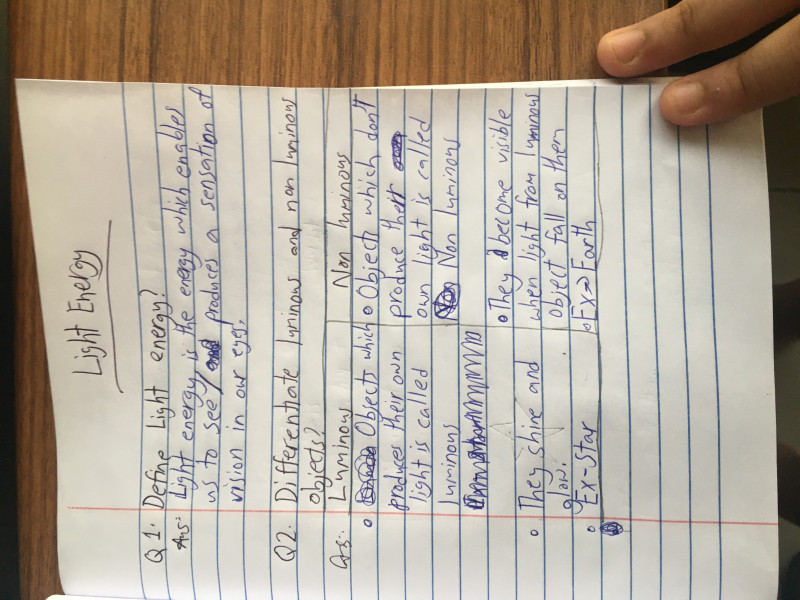 Light Energy
Q1. Define Light energy?
Ans:- Light energy is the energy which enables
us to see / produces a sensation of
vision in our eyes.
Q2. Differentiate luminous and non luminous
objects?
Ans:- Luminous
• Objects which
produces their own
light is called
luminous
• They shine and
glow.
• Ex- Star
Non luminous
• Objects which don't
produce their
own light is called
Non luminous
• They become visible
when light from luminous
object fall on them
• Ex→ Earth